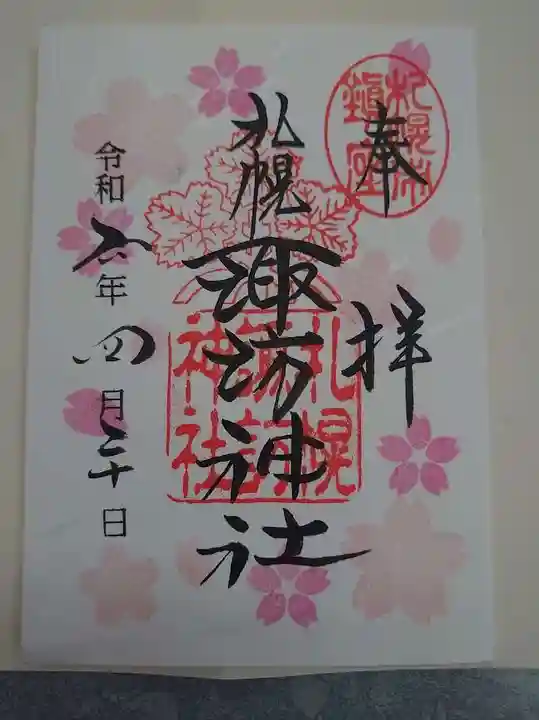 奉拝
札幌市
鎮座
札幌
諏訪神社
札幌
諏訪
神社
令和六年四月二十日